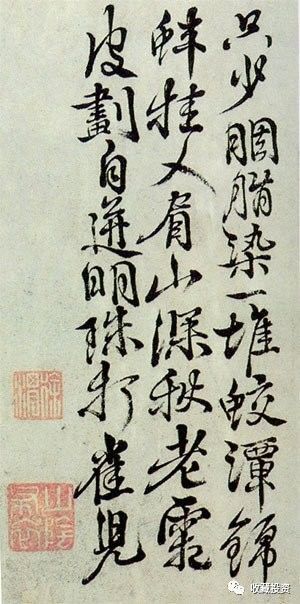 只少胭脂染一堆蛟潭錦
蚌挂人眉山深秋老霜
皮劃自迸明珠打雀兒
徐渭
收藏投资